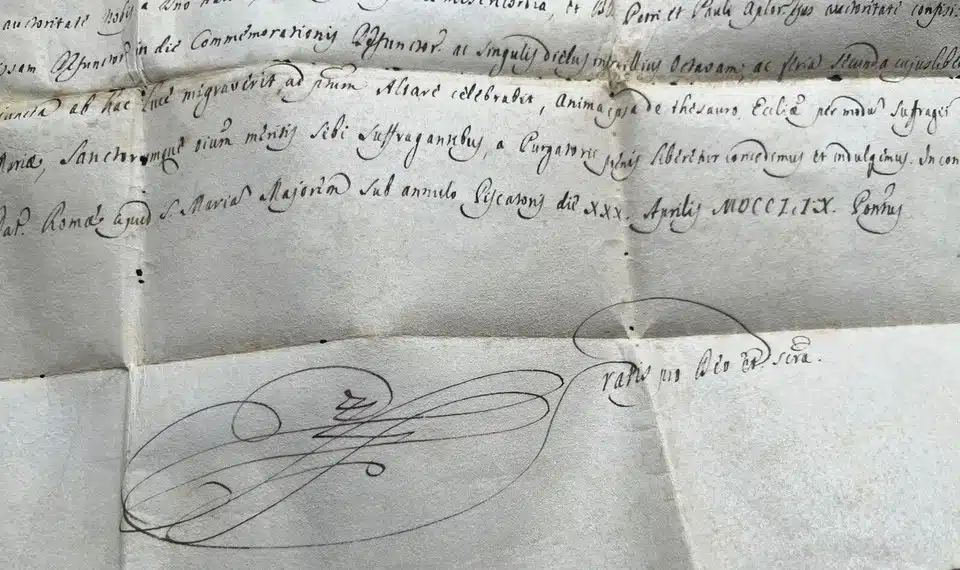 auctoritate nobis a Dno misericordia, et BB. Petri et Pauli Aplor eius auctoritate confisi
Defunctor in die Commemorationis Defunctor ac singulis diebus infra illius Octavam, ac feria secunda cujuslibet
ab hac luce migraverit, ad pnum Altare celebrabit, Anima ipsa de thesauro Eccliæ per modu suffragii
Mariæ, Sanctorumque oium meritis sibi suffragantibus, a Purgatorii pœnis liberetur concedimus et indulgemus. In con
Dat. Romæ apud S. Mariam Majorem sub annulo Piscatoris die XXX. Aprilis MDCCLIX. Pontus
Gratis pro Deo et scra.